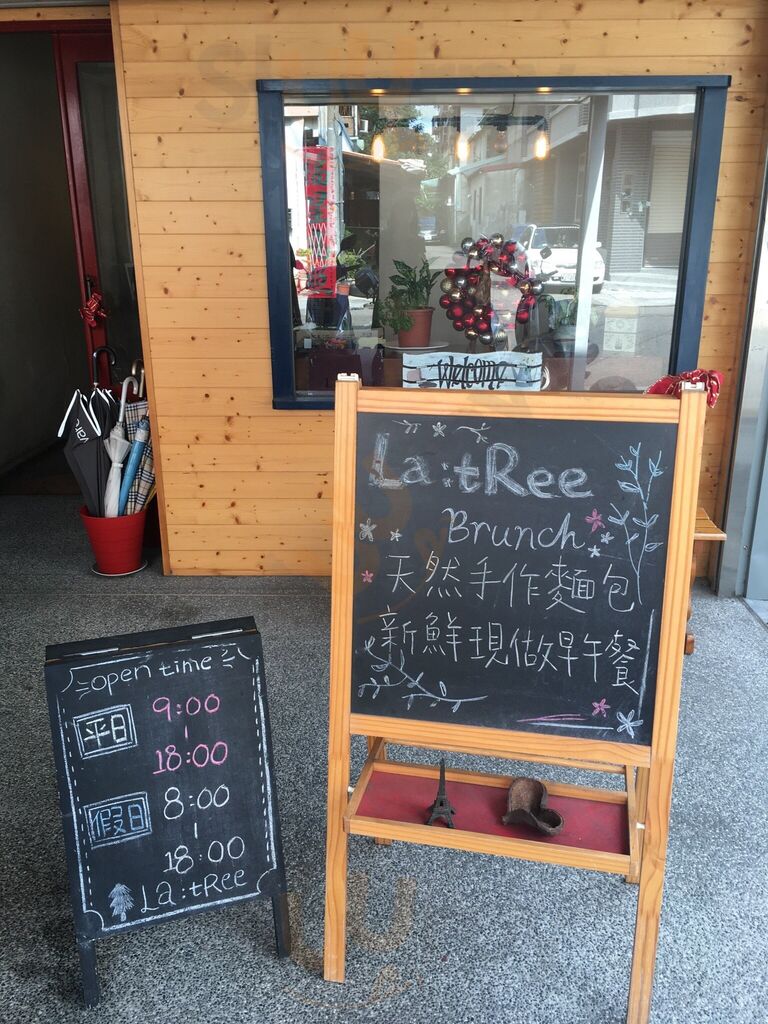 Welcome
La:tRee
Brunch
天然手作麵包
新鮮現做早午餐
open time
平日
9:00
-
18:00
假日
8:00
-
18:00
La:tRee